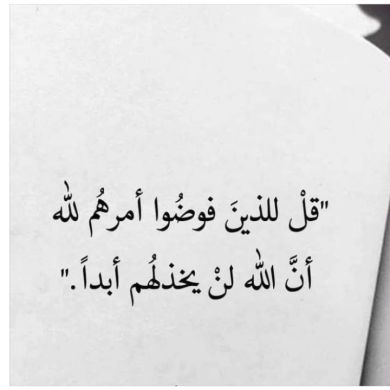 "قلْ للذينَ فوضُوا أمرهُم لله
أنَّ الله لنْ يخذلُهم أبداً."